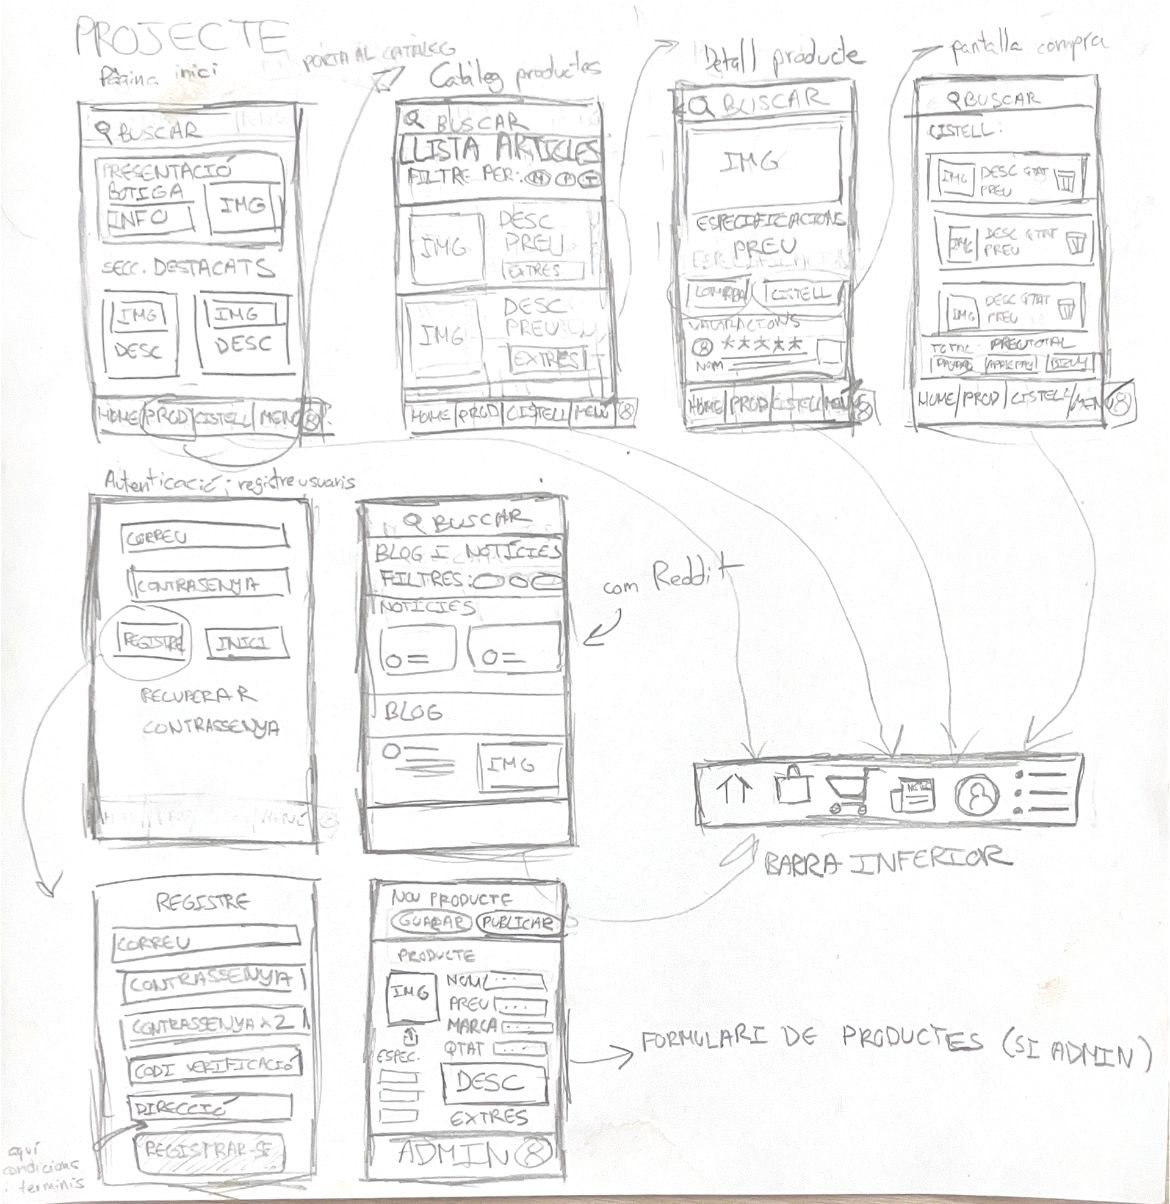 PROJECTE
Pàgina inici
PORTA AL CATÀLEG
BUSCAR
PRESENTACIÓ
BOTIGA
INFO
IMG
SECC. DESTACATS
IMG
DESC
IMG
DESC
HOME PROD CISTELL MENÚ
Catàleg productes
BUSCAR
LLISTA ARTICLES
FILTRE PER:
IMG
DESC
PREU
EXTRES
IMG
DESC
PREU
EXTRES
HOME PROD CISTELL MENÚ
Detall producte
BUSCAR
IMG
ESPECIFICACIONS
PREU
COMPRA CISTELL
VALORACIONS
NOM
HOME PROD CISTELL MENÚ
pantalla compra
BUSCAR
CISTELL:
IMG DESC QTAT
PREU
IMG DESC QTAT
PREU
IMG DESC QTAT
PREU
TOTAL: PREUTOTAL
PAYPAL APPLEPAY BIZUM
HOME PROD CISTELL MENÚ
Autenticació i registre usuaris
CORREU
CONTRASENYA
REGISTRE INICI
RECUPERAR
CONTRASSENYA
BUSCAR
BLOG I NOTÍCIES
FILTRES:
NOTÍCIES
BLOG
IMG
com Reddit
BARRA INFERIOR
REGISTRE
CORREU
CONTRASSENYA
CONTRASSENYA x2
CODI VERIFICACIÓ
DIRECCIÓ
REGISTRAR-SE
aquí
condicions
i terminis
NOU PRODUCTE
GUARDAR PUBLICAR
PRODUCTE
IMG
NOM ...
PREU ...
MARCA ...
QTAT ...
ESPEC.
DESC
EXTRES
ADMIN
FORMULARI DE PRODUCTES (SI ADMIN)